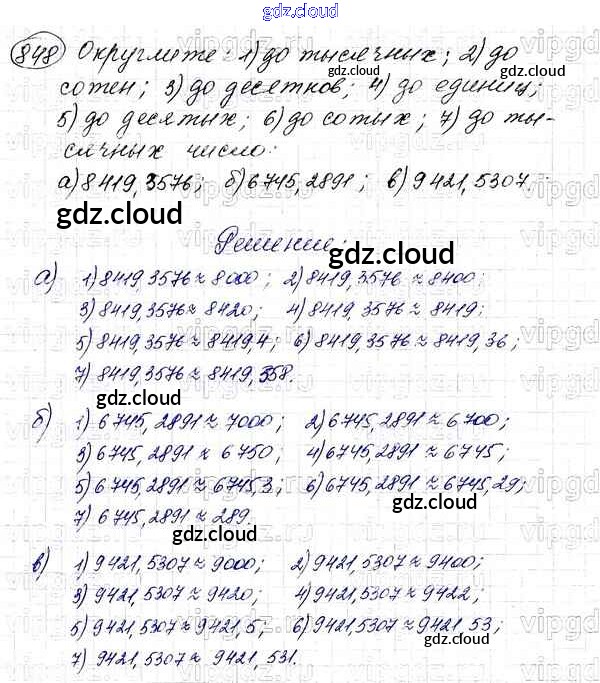 gdz.cloud
848 Округлите: 1) до тысячных; 2) до
сотен; 3) до десятков; 4) до единиц;
5) до десятых; 6) до сотых; 7) до ты-
сячных число:
а) 8419,3576; б) 6745,2891; в) 9421,5307.
Решение:
а) 1) 8419,3576 ≈ 8000; 2) 8419,3576 ≈ 8400;
3) 8419,3576 ≈ 8420; 4) 8419,3576 ≈ 8419;
5) 8419,3576 ≈ 8419,4; 6) 8419,3576 ≈ 8419,36;
7) 8419,3576 ≈ 8419,358.
б) 1) 6745,2891 ≈ 7000; 2) 6745,2891 ≈ 6700;
3) 6745,2891 ≈ 6750; 4) 6745,2891 ≈ 6745;
5) 6745,2891 ≈ 6745,3; 6) 6745,2891 ≈ 6745,29;
7) 6745,2891 ≈ 289.
в) 1) 9421,5307 ≈ 9000; 2) 9421,5307 ≈ 9400;
3) 9421,5307 ≈ 9420; 4) 9421,5307 ≈ 9422;
5) 9421,5307 ≈ 9421,5; 6) 9421,5307 ≈ 9421,53;
7) 9421,5307 ≈ 9421,531.
gdz.cloud